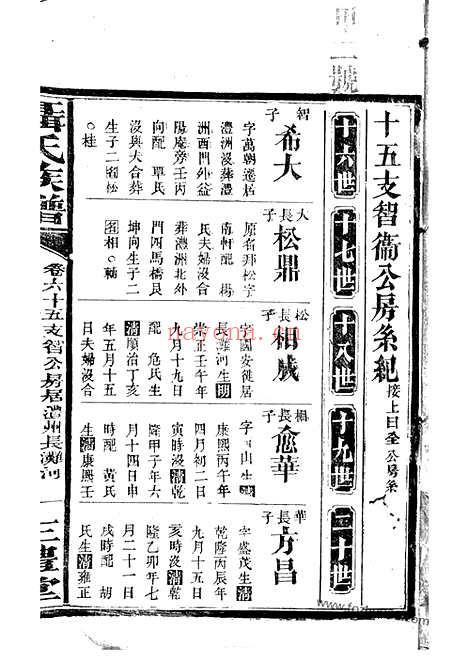 十五支智衞公房系紀 接上曰全公房系
十六世
十七世
十八世
十九世
二十世
智子 希大
字萬朝遷居
澧洲沒葬民
洲西門外益
陽庵旁壬丙
向配 覃氏
沒與夫合葬
生子二 松
○桂
大長子 松鼎
原名 松字
南軒配 楊
氏夫婦沒合
葬澧洲北外
門四馬橋艮
坤向生子二
相○ 
松長子 相成
字國安徙居
長灘河生明
崇正壬午年
九月十九日
配 危氏生
清順治丁亥
年五月十時
日夫婦沒合
相長子 愈華
字 山生清
康熙丙午年
四月初二日
寅時沒清乾
隆甲子年六
月十四日申
時配 黃氏
生清康熙壬
華長子 方昌
字盛茂生清
乾隆丙戌年
九月十五日
亥時沒清乾
隆乙卯年七
月二十一日
戌時配 胡
氏生清雍正
聶氏族譜
卷六十五支智公房居澧州長灘河
三禮堂